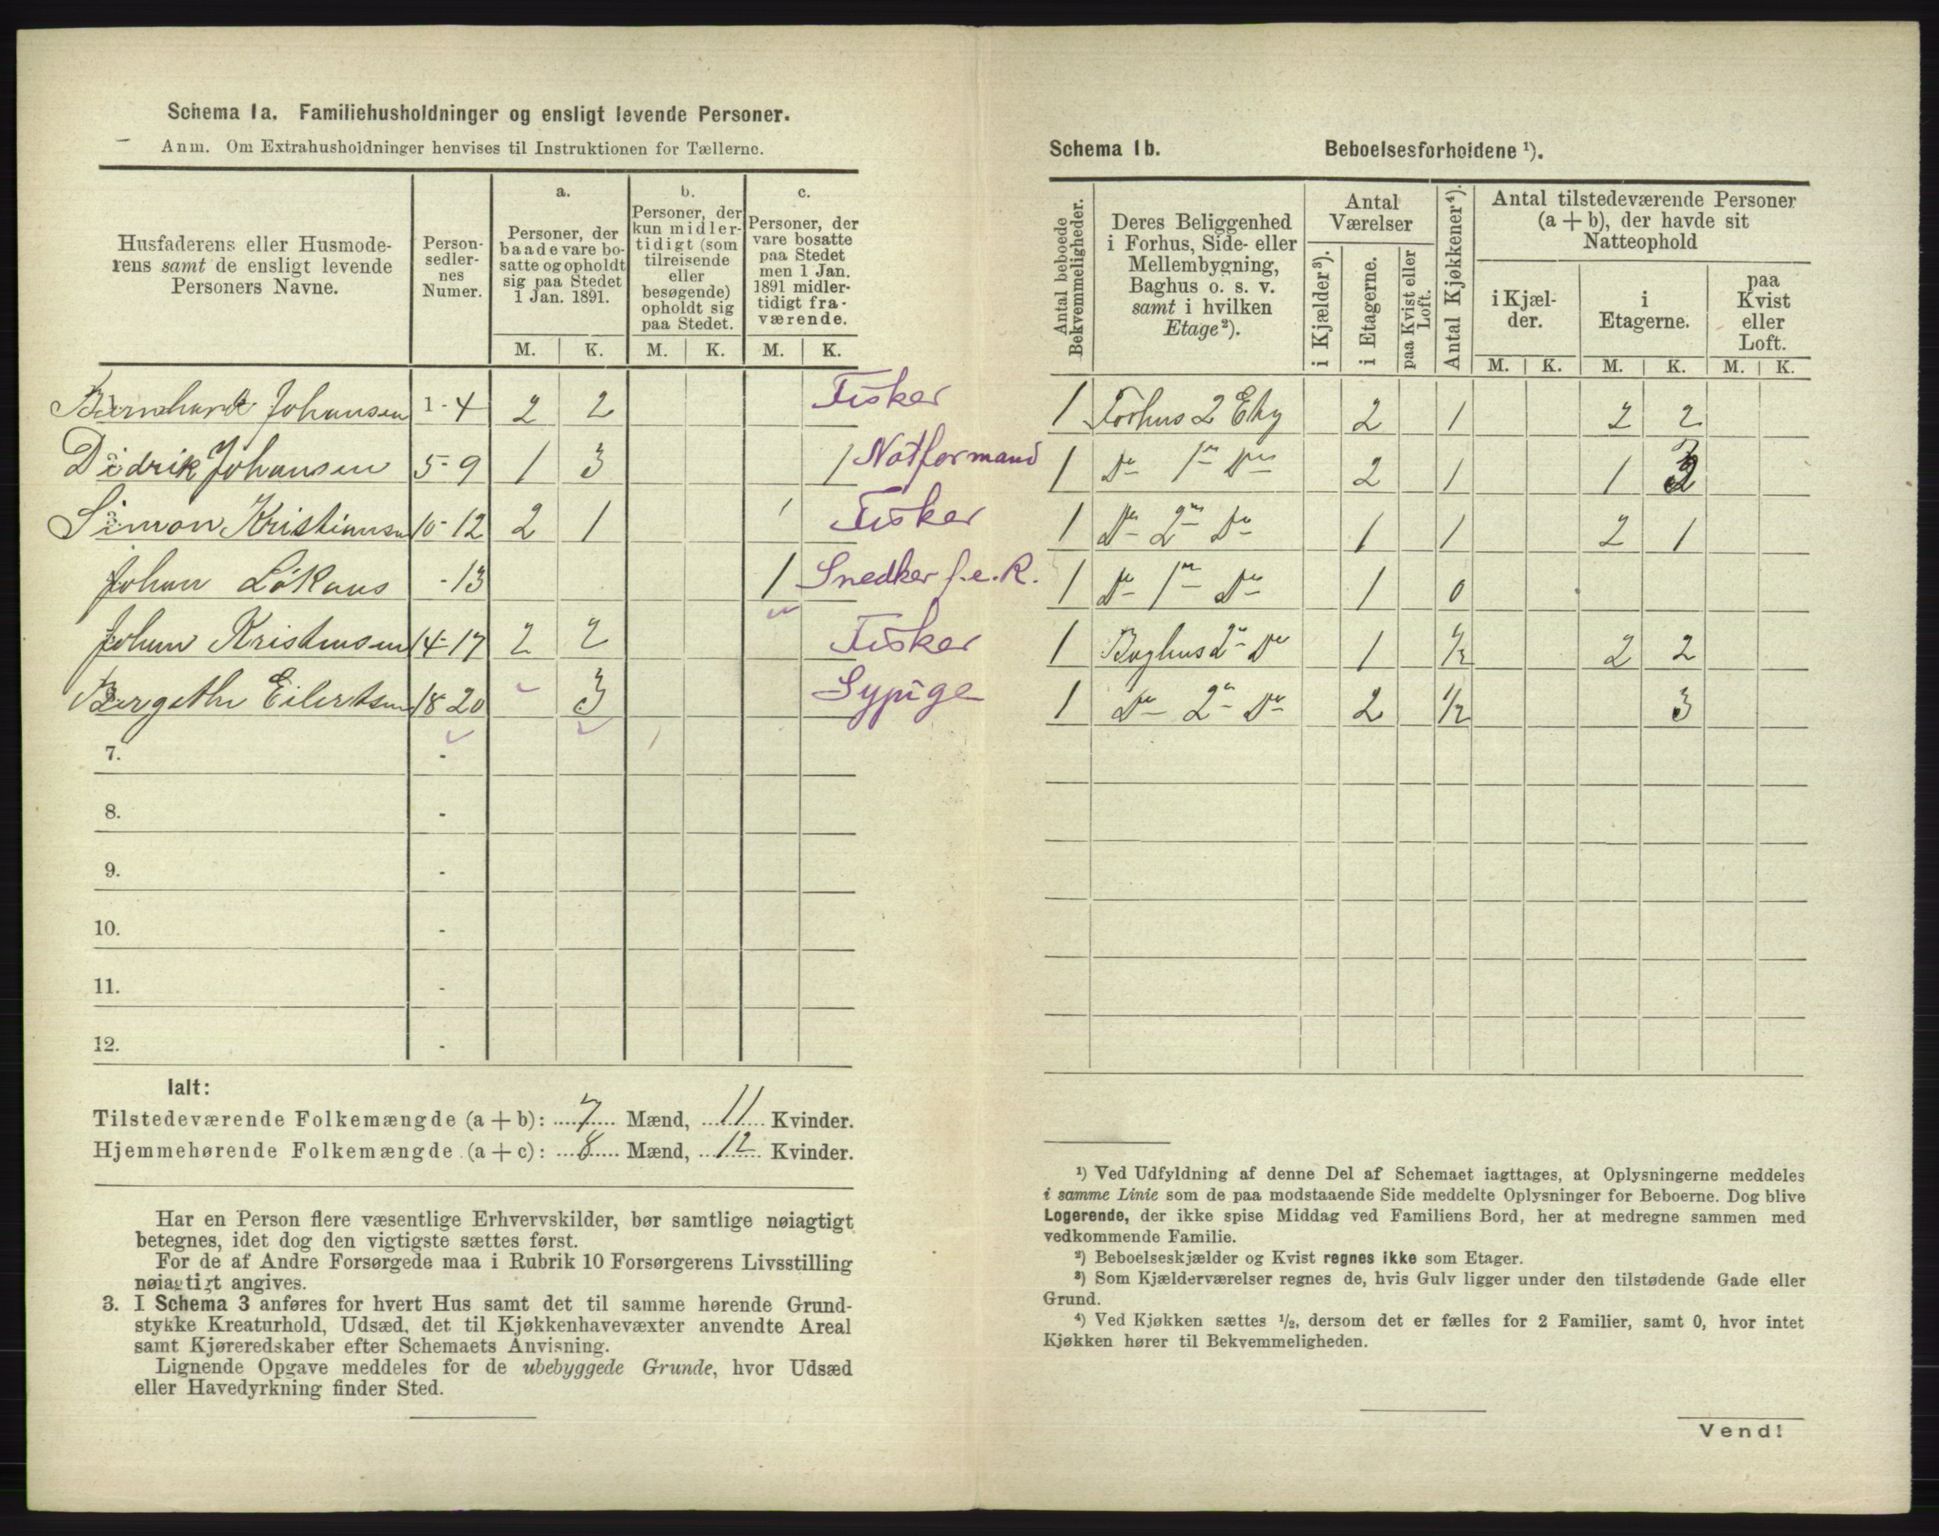 Schema 1a. Familiehusholdninger og ensligt levende Personer.
Anm. Om Extrahusholdninger henvises til Instruktionen for Tællerne.
Husfaderens eller Husmode-
rens samt de ensligt levende
Personers Navne.
Person-
sedler-
nes
Numer.
a.
Personer, der
baade vare bo-
satte og opholdt
sig paa Stedet
1 Jan. 1891.
b.
Personer, der
kun midler-
tidigt (som
tilreisende
eller
besøgende)
opholdt sig
paa Stedet.
c.
Personer, der
vare bosatte
paa Stedet
men 1 Jan.
1891 midler-
tidigt fra-
værende.
M. K. M. K. M. K.
Bernhard Johansen 1-4 2 2 Fisker
Didrik Johansen 5-9 1 3 1 Notformand
Simon Kristiansen 10-12 2 1 1 Fisker
Johan Lökaus -13 1 Snedker f.e.R.
Johan Kristiansen 14-17 2 2 Fisker
Bergethe Eilertsen 18-20 3 Sypige
7. -
8. -
9. -
10. -
11. -
12. -
Ialt:
Tilstedeværende Folkemængde (a + b): 7 Mænd, 11 Kvinder.
Hjemmehørende Folkemængde (a + c): 8 Mænd, 12 Kvinder.
Har en Person flere væsentlige Erhvervskilder, bør samtlige nøiagtigt
betegnes, idet dog den vigtigste sættes først.
For de af Andre Forsørgede maa i Rubrik 10 Forsørgerens Livsstilling
nøiagtigt angives.
3. I Schema 3 anføres for hvert Hus samt det til samme hørende Grund-
stykke Kreaturhold, Udsæd, det til Kjøkkenhavevæxter anvendte Areal
samt Kjøreredskaber efter Schemaets Anvisning.
Lignende Opgave meddeles for de ubebyggede Grunde, hvor Udsæd
eller Havedyrkning finder Sted.
Schema 1b. Beboelsesforholdene ¹).
Antal beboede
Bekvemmeligheder.
Deres Beliggenhed
i Forhus, Side- eller
Mellembygning,
Baghus o. s. v.
samt i hvilken
Etage²).
Antal
Værelser
i Kjælder³).
i Etagerne.
paa Kvist eller
Loft.
Antal Kjøkkener⁴).
Antal tilstedeværende Personer
(a + b), der havde sit
Natteophold
i Kjæl-
der.
i
Etagerne.
paa
Kvist
eller
Loft.
M. K. M. K. M. K.
1 Forhus 2 Etg 2 1 2 2
1 Do 1ste Do 2 1 1 3
1 Do 2den Do 1 1 2 1
1 Do 1ste Do 1 0
1 Baghus 2den Do 1 1/2 2 2
1 Do 2den Do 2 1/2 3
¹) Ved Udfyldning af denne Del af Schemaet iagttages, at Oplysningerne meddeles
i samme Linie som de paa modstaaende Side meddelte Oplysninger for Beboerne. Dog blive
Logerende, der ikke spise Middag ved Familiens Bord, her at medregne sammen med
vedkommende Familie.
²) Beboelseskjælder og Kvist regnes ikke som Etager.
³) Som Kjælderværelser regnes de, hvis Gulv ligger under den tilstødende Gade eller
Grund.
⁴) Ved Kjøkken sættes ½, dersom det er fælles for 2 Familier, samt 0, hvor intet
Kjøkken hører til Bekvemmeligheden.
Vend!